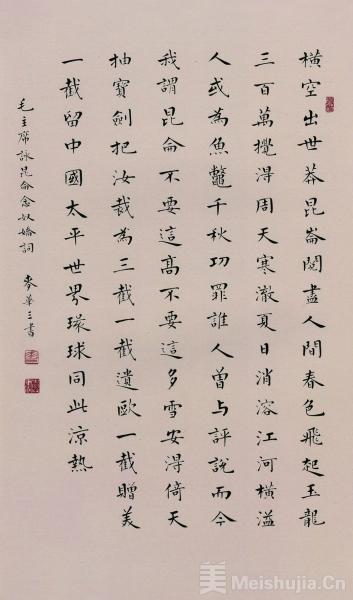 橫空出世莽昆崙閱盡人間春色飛起玉龍
三百萬攪得周天寒澈夏日消溶江河橫溢
人或為魚鼈千秋功罪誰人曾与評說而今
我謂昆侖不要這高不要這多雪安得倚天
抽寶劍把汝裁為三截一截遺歐一截贈美
一截留中國太平世界環球同此涼熱
毛主席詠昆侖念奴嬌詞 麥華三書
美 Meishujia.Cn